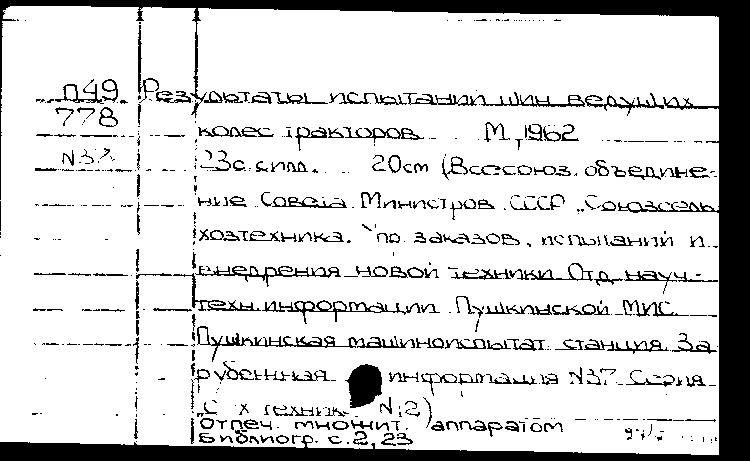 П49 Результаты испытаний шин ведущих
778
колес тракторов М, 1962
N37 23с. с илл. 20см (Всесоюз. объедине-
ние Совета Министров СССР „Союзсель
хозтехника." по заказов, испытаний и
внедрения новой техники Отд. науч.-
техн. информации Пушкинской МИС.
Пушкинская машиноиспытат. станция. За
рубежная информация N37. Серия
„С х техника N12)
Отпеч. множит. аппаратом
Библиогр. с. 2, 23